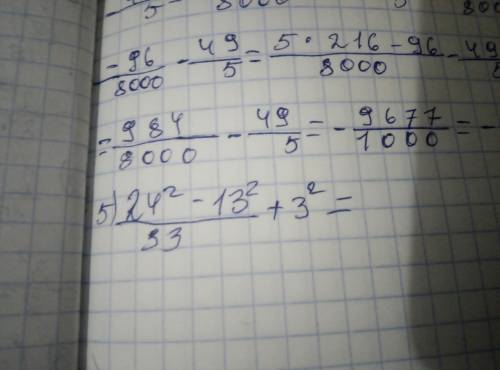 5 8000 5 800
-96/8000 - 49/5 = (5 · 216 - 96)/8000 - 49/5
= 984/8000 - 49/5 = - 9677/1000 = -
5) (24² - 13²)/33 + 3² =